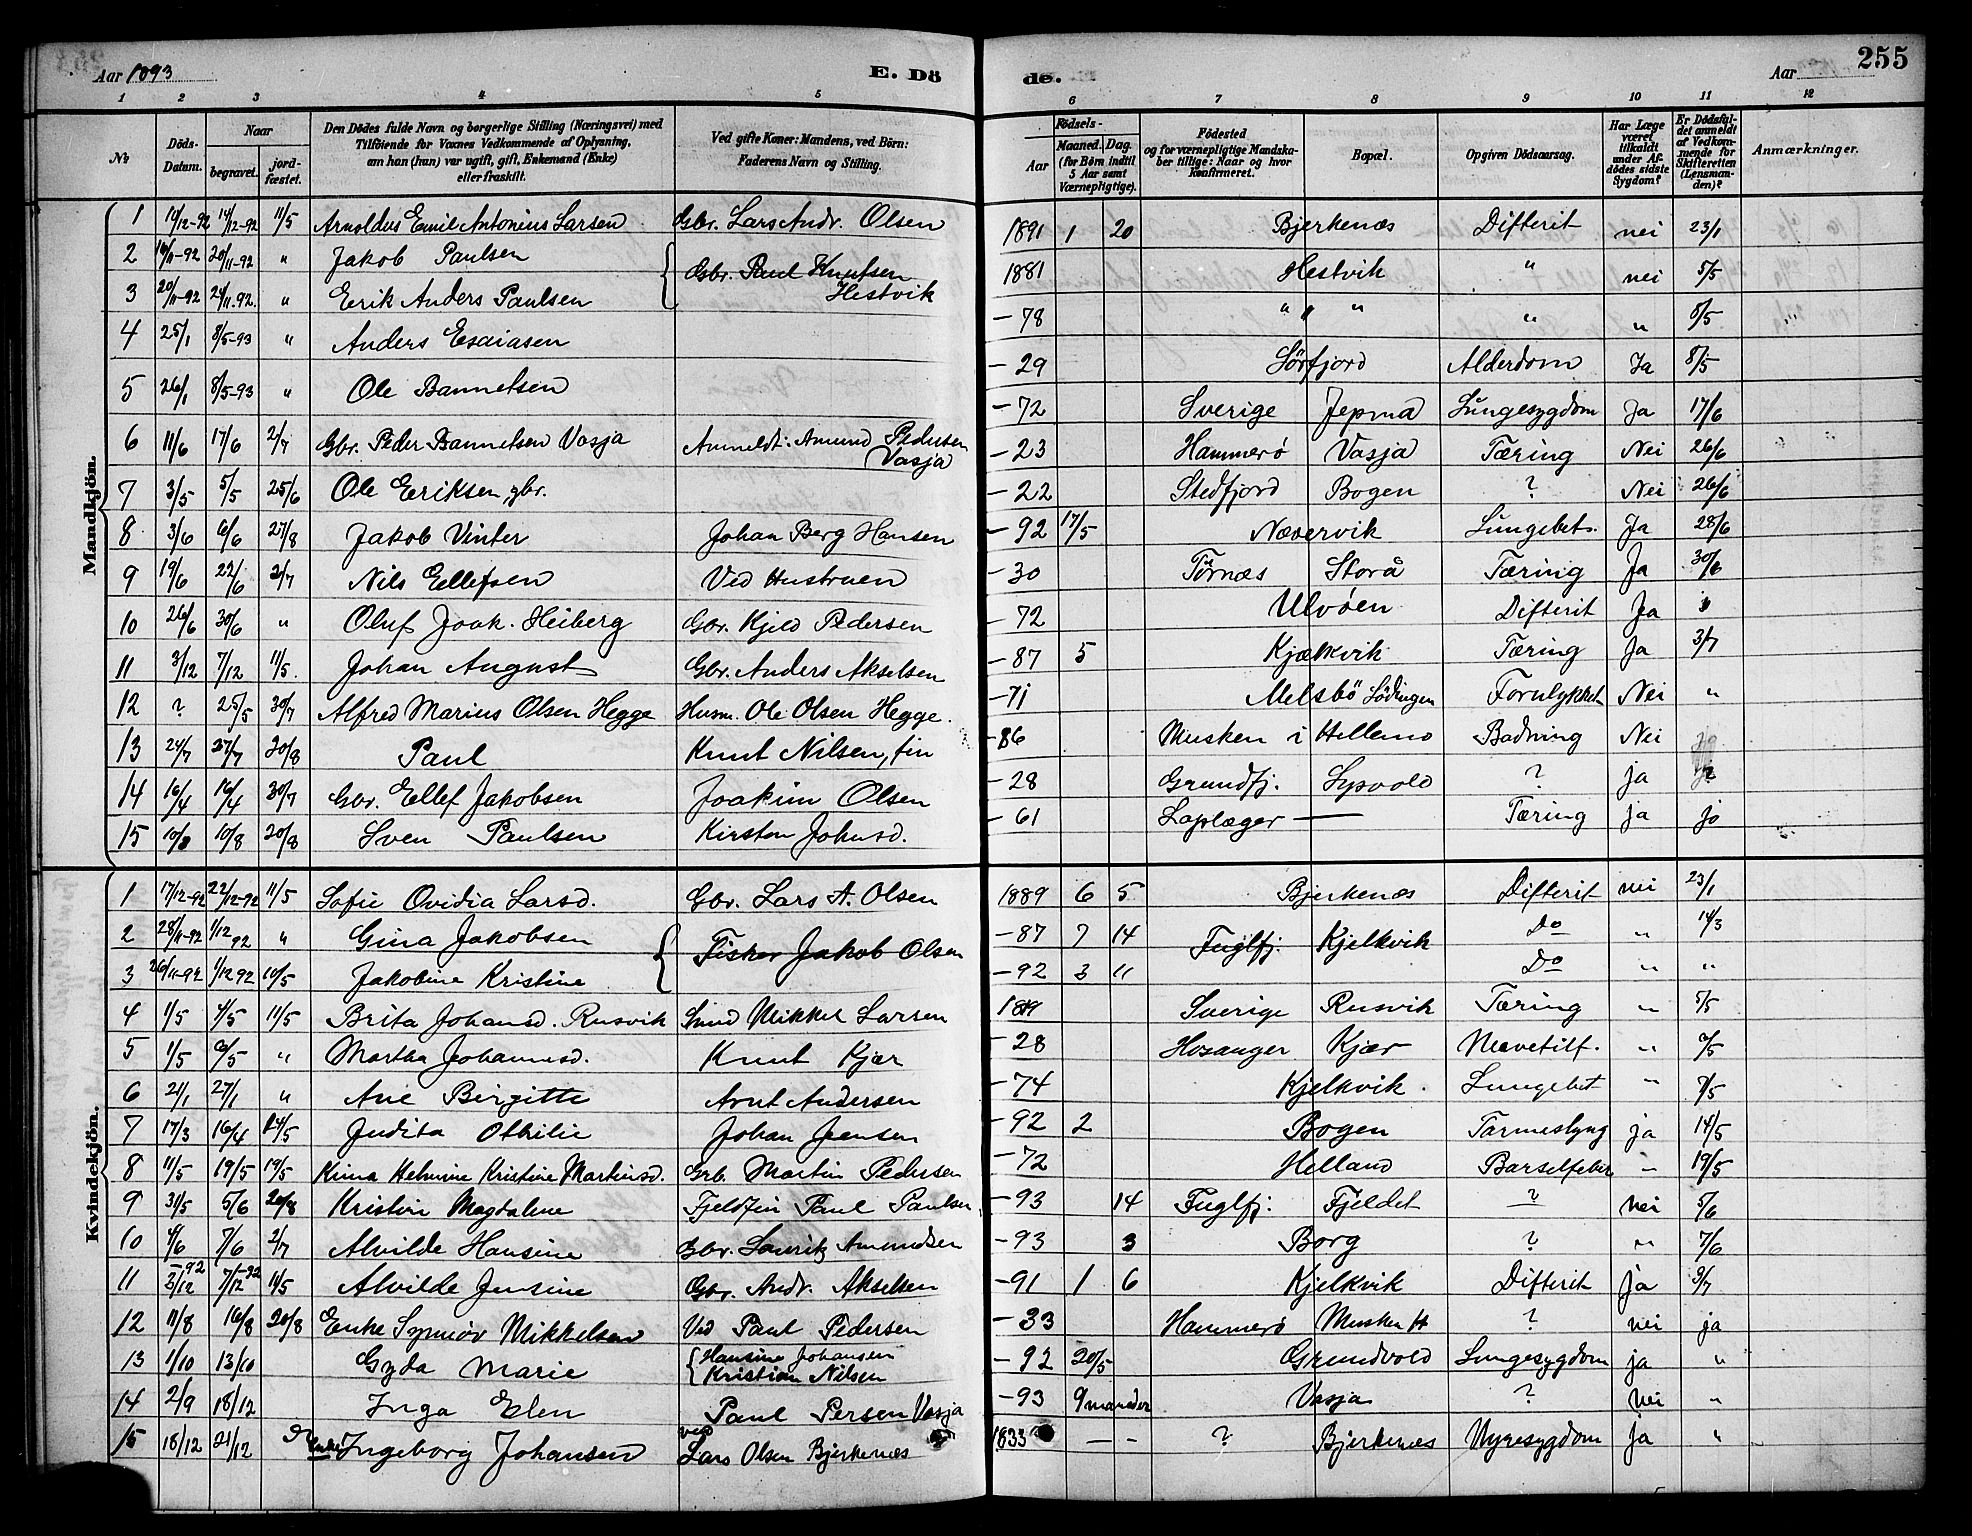 Aar 1893 E. Dö de. Aar 255
1 2 3 4 5 6 7 8 9 10 11 12
No
Döds-Datum.
Naar
begravet.
jord-fæstet.
Den Dödes fulde Navn og borgerlige Stilling (Næringsvei) med
Tilföiende for Voxnes Vedkommende af Oplysning,
om han (hun) var ugift, gift, Enkemand (Enke)
eller fraskilt.
Ved gifte Koner: Mandens, ved Börn:
Faderens Navn og Stilling.
Födsels-
Aar
Maaned. Dag.
(for Börn indtil
5 Aar samt
Værnepligtige).
Födested
og for værnepligtige Mandska-
ber tillige: Naar og hvor
konfirmeret.
Bopæl.
Opgiven Dödsaarsag.
Har Læge
været
tilkaldt
under Af-
dödes sidste
Sygdom?
Er Dödsfal-
det anmeldt
af Vedkom-
mende for
Skifteretten
(Lensman-
den)?
Anmærkninger.
Mandkjön.
1 14/12-92 11/5 Arnoldus Emil Antonius Larsen Gbr. Lars Andr. Olsen 1891 1 20 Bjerkenæs Difterit nei 23/1
2 16/11-92 20/11-92 " Jakob Paulsen Gbr. Paul Knutsen Hestvik 1881 Hestvik " nei 5/5
3 20/11-92 24/11-92. " Erik Anders Paulsen -78 " " " " 5/5
4 25/1 8/5-93 " Anders Esaiasen -29 Sörfjord Alderdom Ja 8/5
5 26/1 8/5-93 " Ole Bannetsen -72 Sverige Jepma Lungesygdom Ja 17/6
6 11/6 17/6 2/7 Gbr. Peder Bannetsen Vasja Anmeldt: Amund Pedersen Vasja -23 Hammerø Vasja Tæring Nei 26/6
7 3/5 5/5 25/6 Ole Eriksen, gbr. -22 Stedfjord Bogen ? Nei 26/6
8 3/6 6/6 27/8 Jakob Vinter Johan Berg Hansen -92 17/5 Nævervik Lungebet. Ja 28/6
9 19/6 22/6 2/7 Nils Ellefsen Ved Hustruen -30 Törnæs Storå Tæring Ja 30/6
10 26/6 30/6 " Oluf Joak. Heiberg Gbr. Kjeld Pedersen -72 Ulvöen Difterit Ja
11 3/12 7/12 11/5. Johan August Gbr. Anders Akselsen -87 5 Kjælkvik Tæring Ja 3/7
12 ? 25/5 30/7 Alfred Marius Olsen Hegge Husm. Ole Olsen Hegge. -71 Melsbö Lödingen Forulykket Nei "
13 24/7 27/7 20/8 Paul Knut Nilsen, fin -86 Musken i Hellemo Badning Nei
14 16/4 16/4 30/7 Gbr. Ellef Jakobsen Joakim Olsen -28 Grundfj. Sysvold ? ja ja
15 10/8 10/8 20/8 Sven Paulsen Kirsten Johnsd. -61 Laplæger — Tæring ja ja
Kvindekjön.
1 17/12-92 22/12-92 11/5 Sofie Ovidia Larsd. Gbr. Lars A. Olsen 1889 6 5 Bjerkenæs Difterit nei 23/1
2 28/11-92 1/12 92 " Gina Jakobsen Fisker Jakob Olsen -87 7 14 Fuglfj. Kjelkvik Do " 14/3
3 26/11-92 1/12 92 10/5 Jakobine Kristine -92 3 11 Do " "
4 1/5 4/5 11/5 Brita Johansd. Rusvik Mikkel Larsen Sverige Rusvik Tæring " 5/5
5 1/5 6/5 " Martha Johannesd. Knut Kjær -28 Hosanger Kjær Mavetilf. " 6/5
6 21/1 27/1 " Ane Birgitte Arnt Andersen -74 Kjelkvik. Lungebet " 7/5
7 17/3 16/4 14/5 Judita Othilie Johan Jensen -92 2 Bogen Tarmeslyng ja 14/5
8 11/5 19/5 19/5 Kima Helmine Kristine Martinsd. Grb. Martin Pedersen -72 Helland Barselfeber " 19/5
9 31/5 5/6 20/8 Kristin Magdalene Fjeldfin Paul Paulsen -93 14 Fuglfj. Fjeldet ? nei 5/6
10 4/6 7/6 2/7 Alvilde Hansine Gbr. Laurits Amundsen -93 3 Borg ? " 7/6
11 3/12-92 7/12-92 11/5 Alvilde Jensine Gbr. Andr. Akselsen -91 1 6 Kjelkvik Difterit ja 3/7
12 11/8 16/8 20/8 Enke Synnöv Mikkelsen Ved Paul Pedersen -33 Hammerø Musken H ? nei ja
13 1/10 13/10 Gyda Marie Hansine Johansen Kristian Nilsen -92 20/5 Grundvold Lungesygdom ja "
14 2/9 18/12 Inga Elen Paul Persen Vasja -93 9 maneder Vasja ? nei "
15 18/12 21/12 Enke Ingeborg Johansen ved Lars Olsen Bjerkenæs 1833 - - ? Bjerkenæs Nyresygdom Ja "